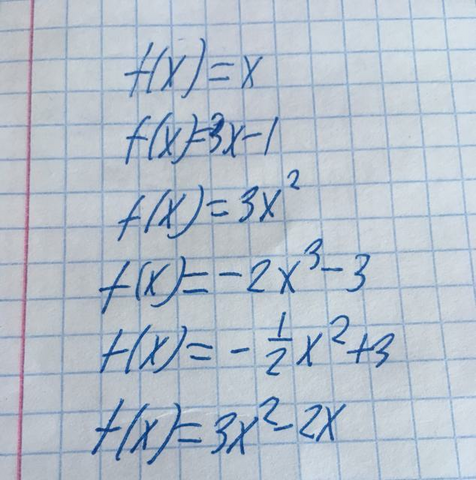 f(x)=x
f(x)=3x-1
f(x)=3x²
f(x)=-2x³-3
f(x)=-½x²+3
f(x)=3x²-2x